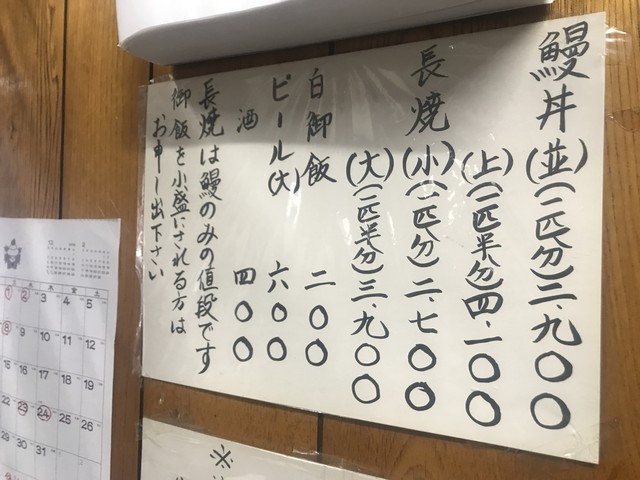 鰻丼(並)(一匹分)二、九〇〇
(上)(一匹半分)四、一〇〇
長焼(小)(一匹分)二、七〇〇
(大)(一匹半分)三、九〇〇
白御飯 二〇〇
ビール(大) 六〇〇
酒 四〇〇
長焼は鰻のみの値段です
御飯を小盛にされる方は
お申し出下さい
1 2 3 4 5
8 9 10 11 12
15 16 17 18 19
22 23 24 25 26
29 30 31
※